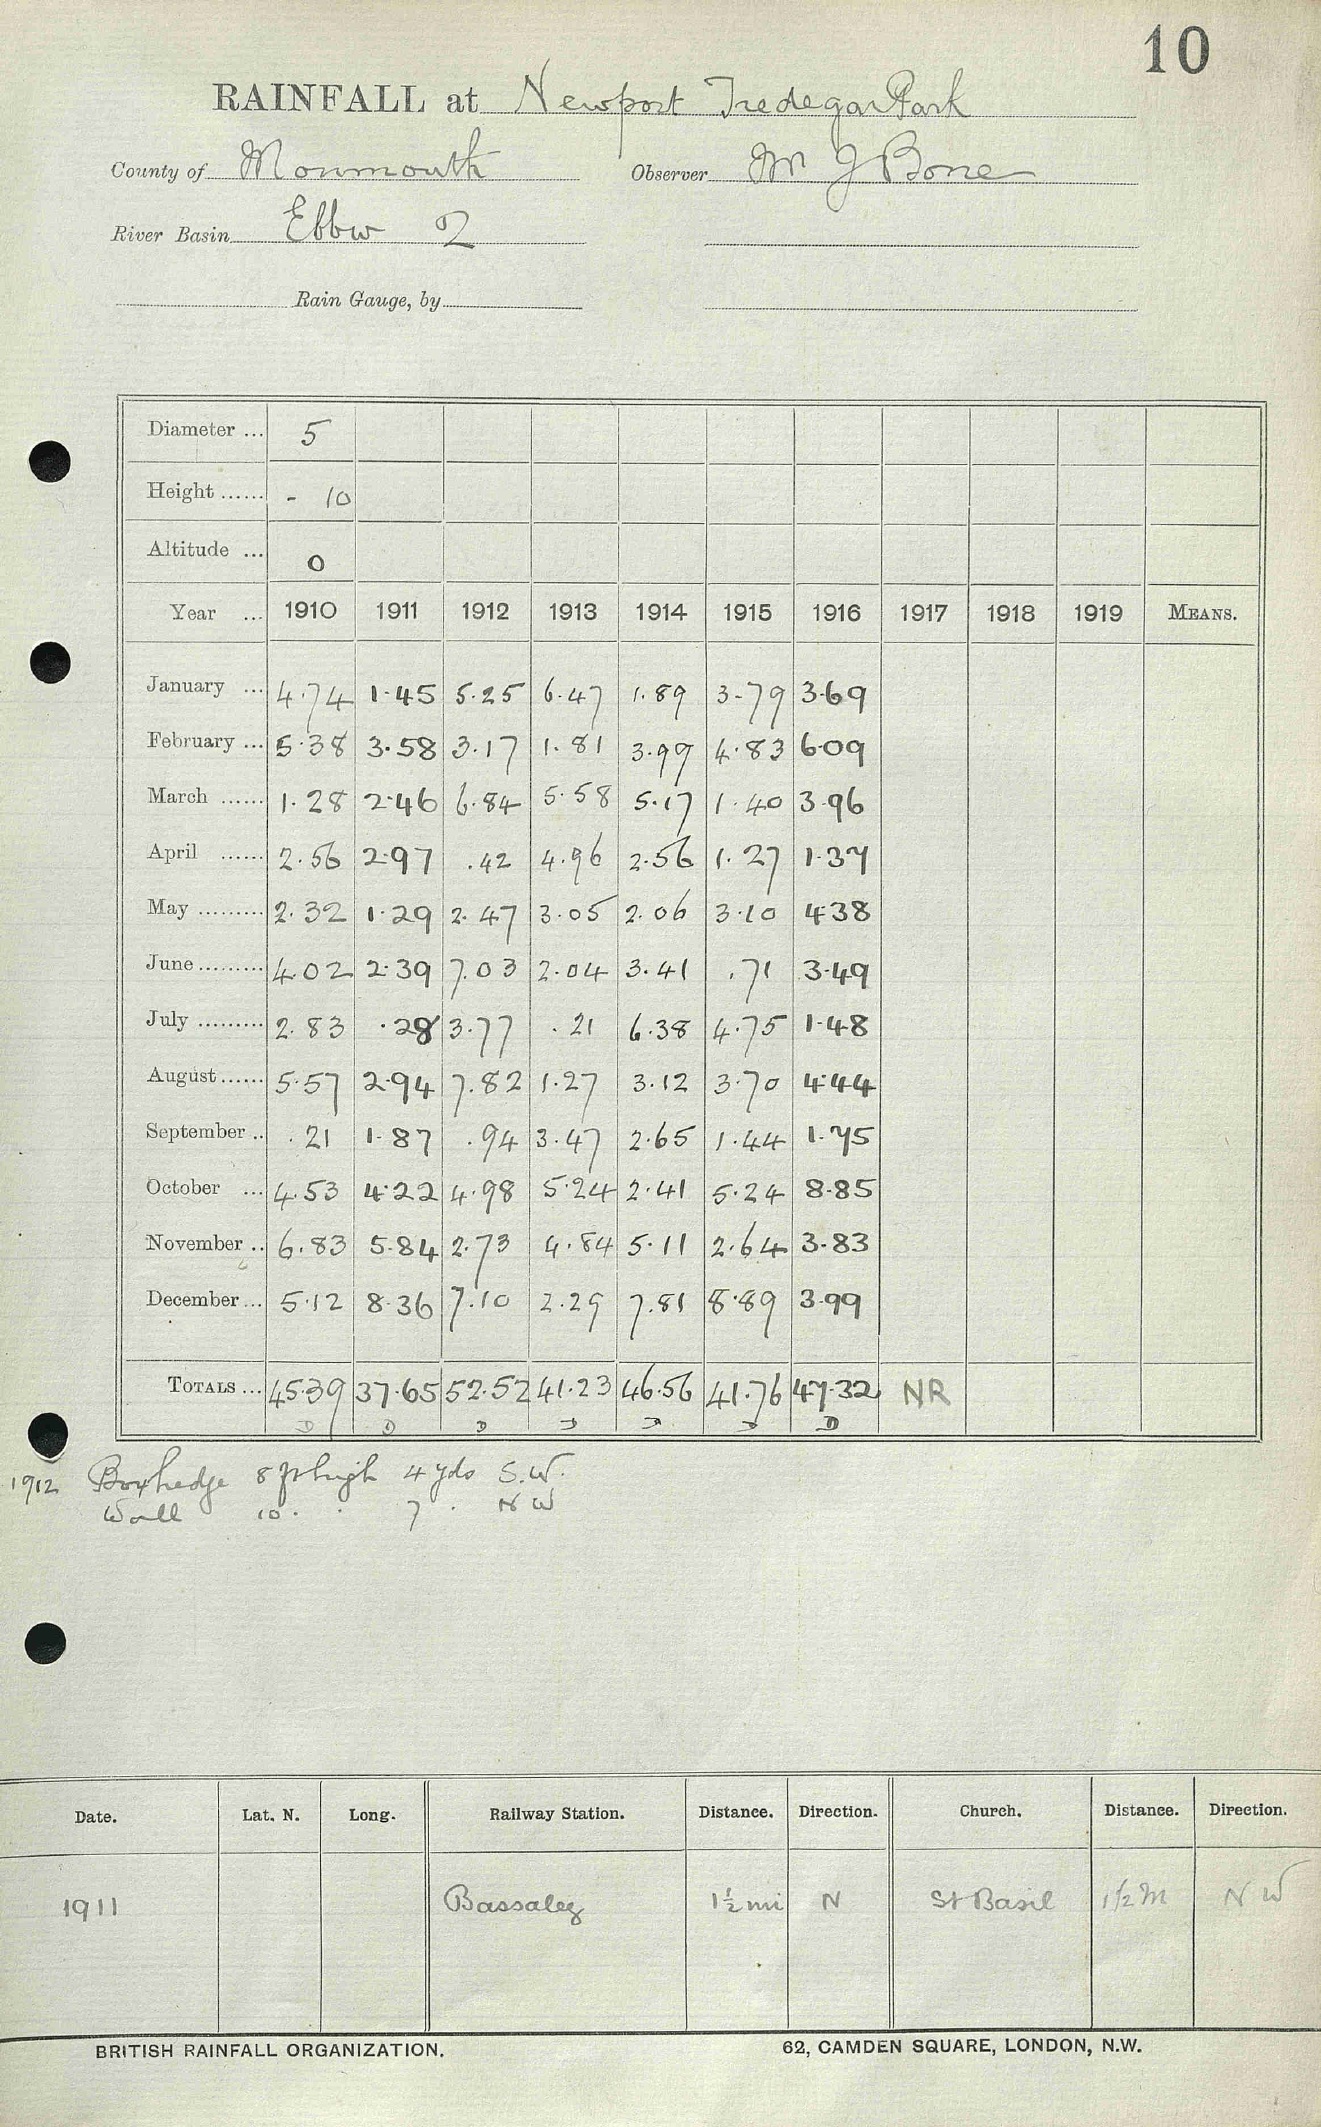 10
RAINFALL at Newport Tredegar Park
County of Monmouth Observer Mr J Bone
River Basin Ebbw 2
Rain Gauge, by
Diameter ... 5
Height ...... - 10
Altitude ... 0
Year ... 1910 1911 1912 1913 1914 1915 1916 1917 1918 1919 MEANS.
January ... 4.74 1.45 5.25 6.47 1.89 3.79 3.69
February ... 5.38 3.58 3.17 1.81 3.99 4.83 6.09
March ...... 1.28 2.46 6.84 5.58 5.17 1.40 3.96
April ...... 2.56 2.97 .42 4.96 2.56 1.27 1.37
May ......... 2.32 1.29 2.47 3.05 2.06 3.10 4.38
June ......... 4.02 2.39 7.03 2.04 3.41 .71 3.49
July ......... 2.83 .28 3.77 .21 6.38 4.75 1.48
August ...... 5.57 2.94 7.82 1.27 3.12 3.70 4.44
September .. .21 1.87 .94 3.47 2.65 1.44 1.75
October ... 4.53 4.22 4.98 5.24 2.41 5.24 8.85
November .. 6.83 5.84 2.73 4.84 5.11 2.64 3.83
December ... 5.12 8.36 7.10 2.29 7.81 8.89 3.99
TOTALS ... 45.39 37.65 52.52 41.23 46.56 41.76 47.32 NR
D D D D D D D
1912 Boxhedge 8 ft high 4 yds S.W.
Wall 10 . . 7 . NW
Date. Lat. N. Long. Railway Station. Distance. Direction. Church. Distance. Direction.
1911 Bassaleg 1½ mi N St Basil 1½ M NW
BRITISH RAINFALL ORGANIZATION. 62, CAMDEN SQUARE, LONDON, N.W.